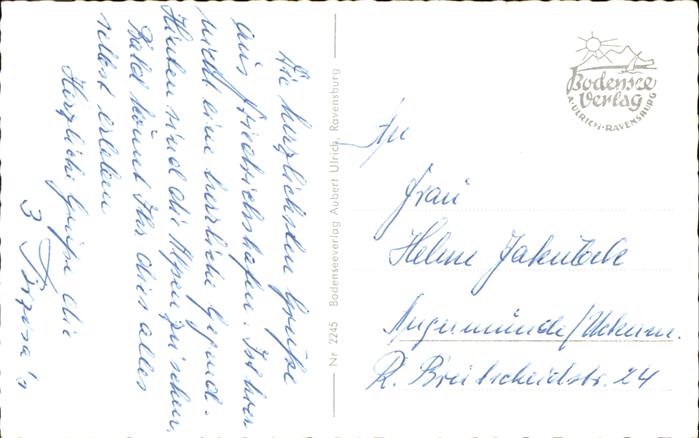 Die herzlichsten Grüße
aus Friedrichshafen. Ist hier
nicht eine herrliche Gegend.
Hinten sind die Alpen zu sehen.
Bald könnt Ihr dies alles
selbst erleben
Herzliche Grüße die
3
Nr. 2245 Bodenseeverlag Aubert Ulrich, Ravensburg
Bodensee
Verlag
A·ULRICH·RAVENSBURG
An
Frau
Helene
Angermünde/Uckerm.
R. Breitscheidstr. 24